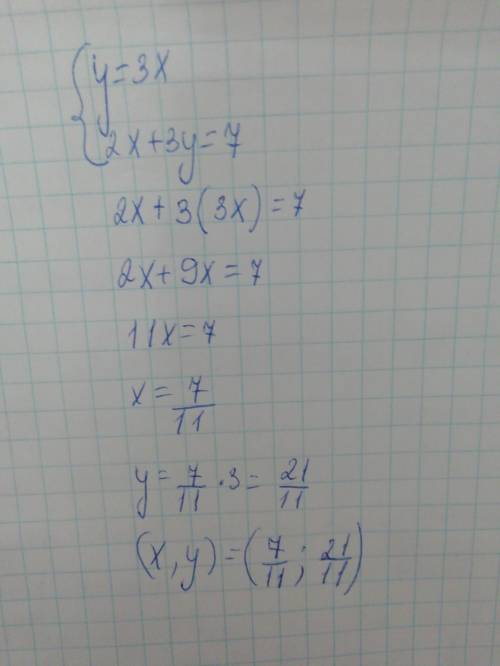 {y=3x
2x+3y=7
2x+3(3x)=7
2x+9x=7
11x=7
x=7/11
y=7/11·3=21/11
(x,y)=(7/11;21/11)